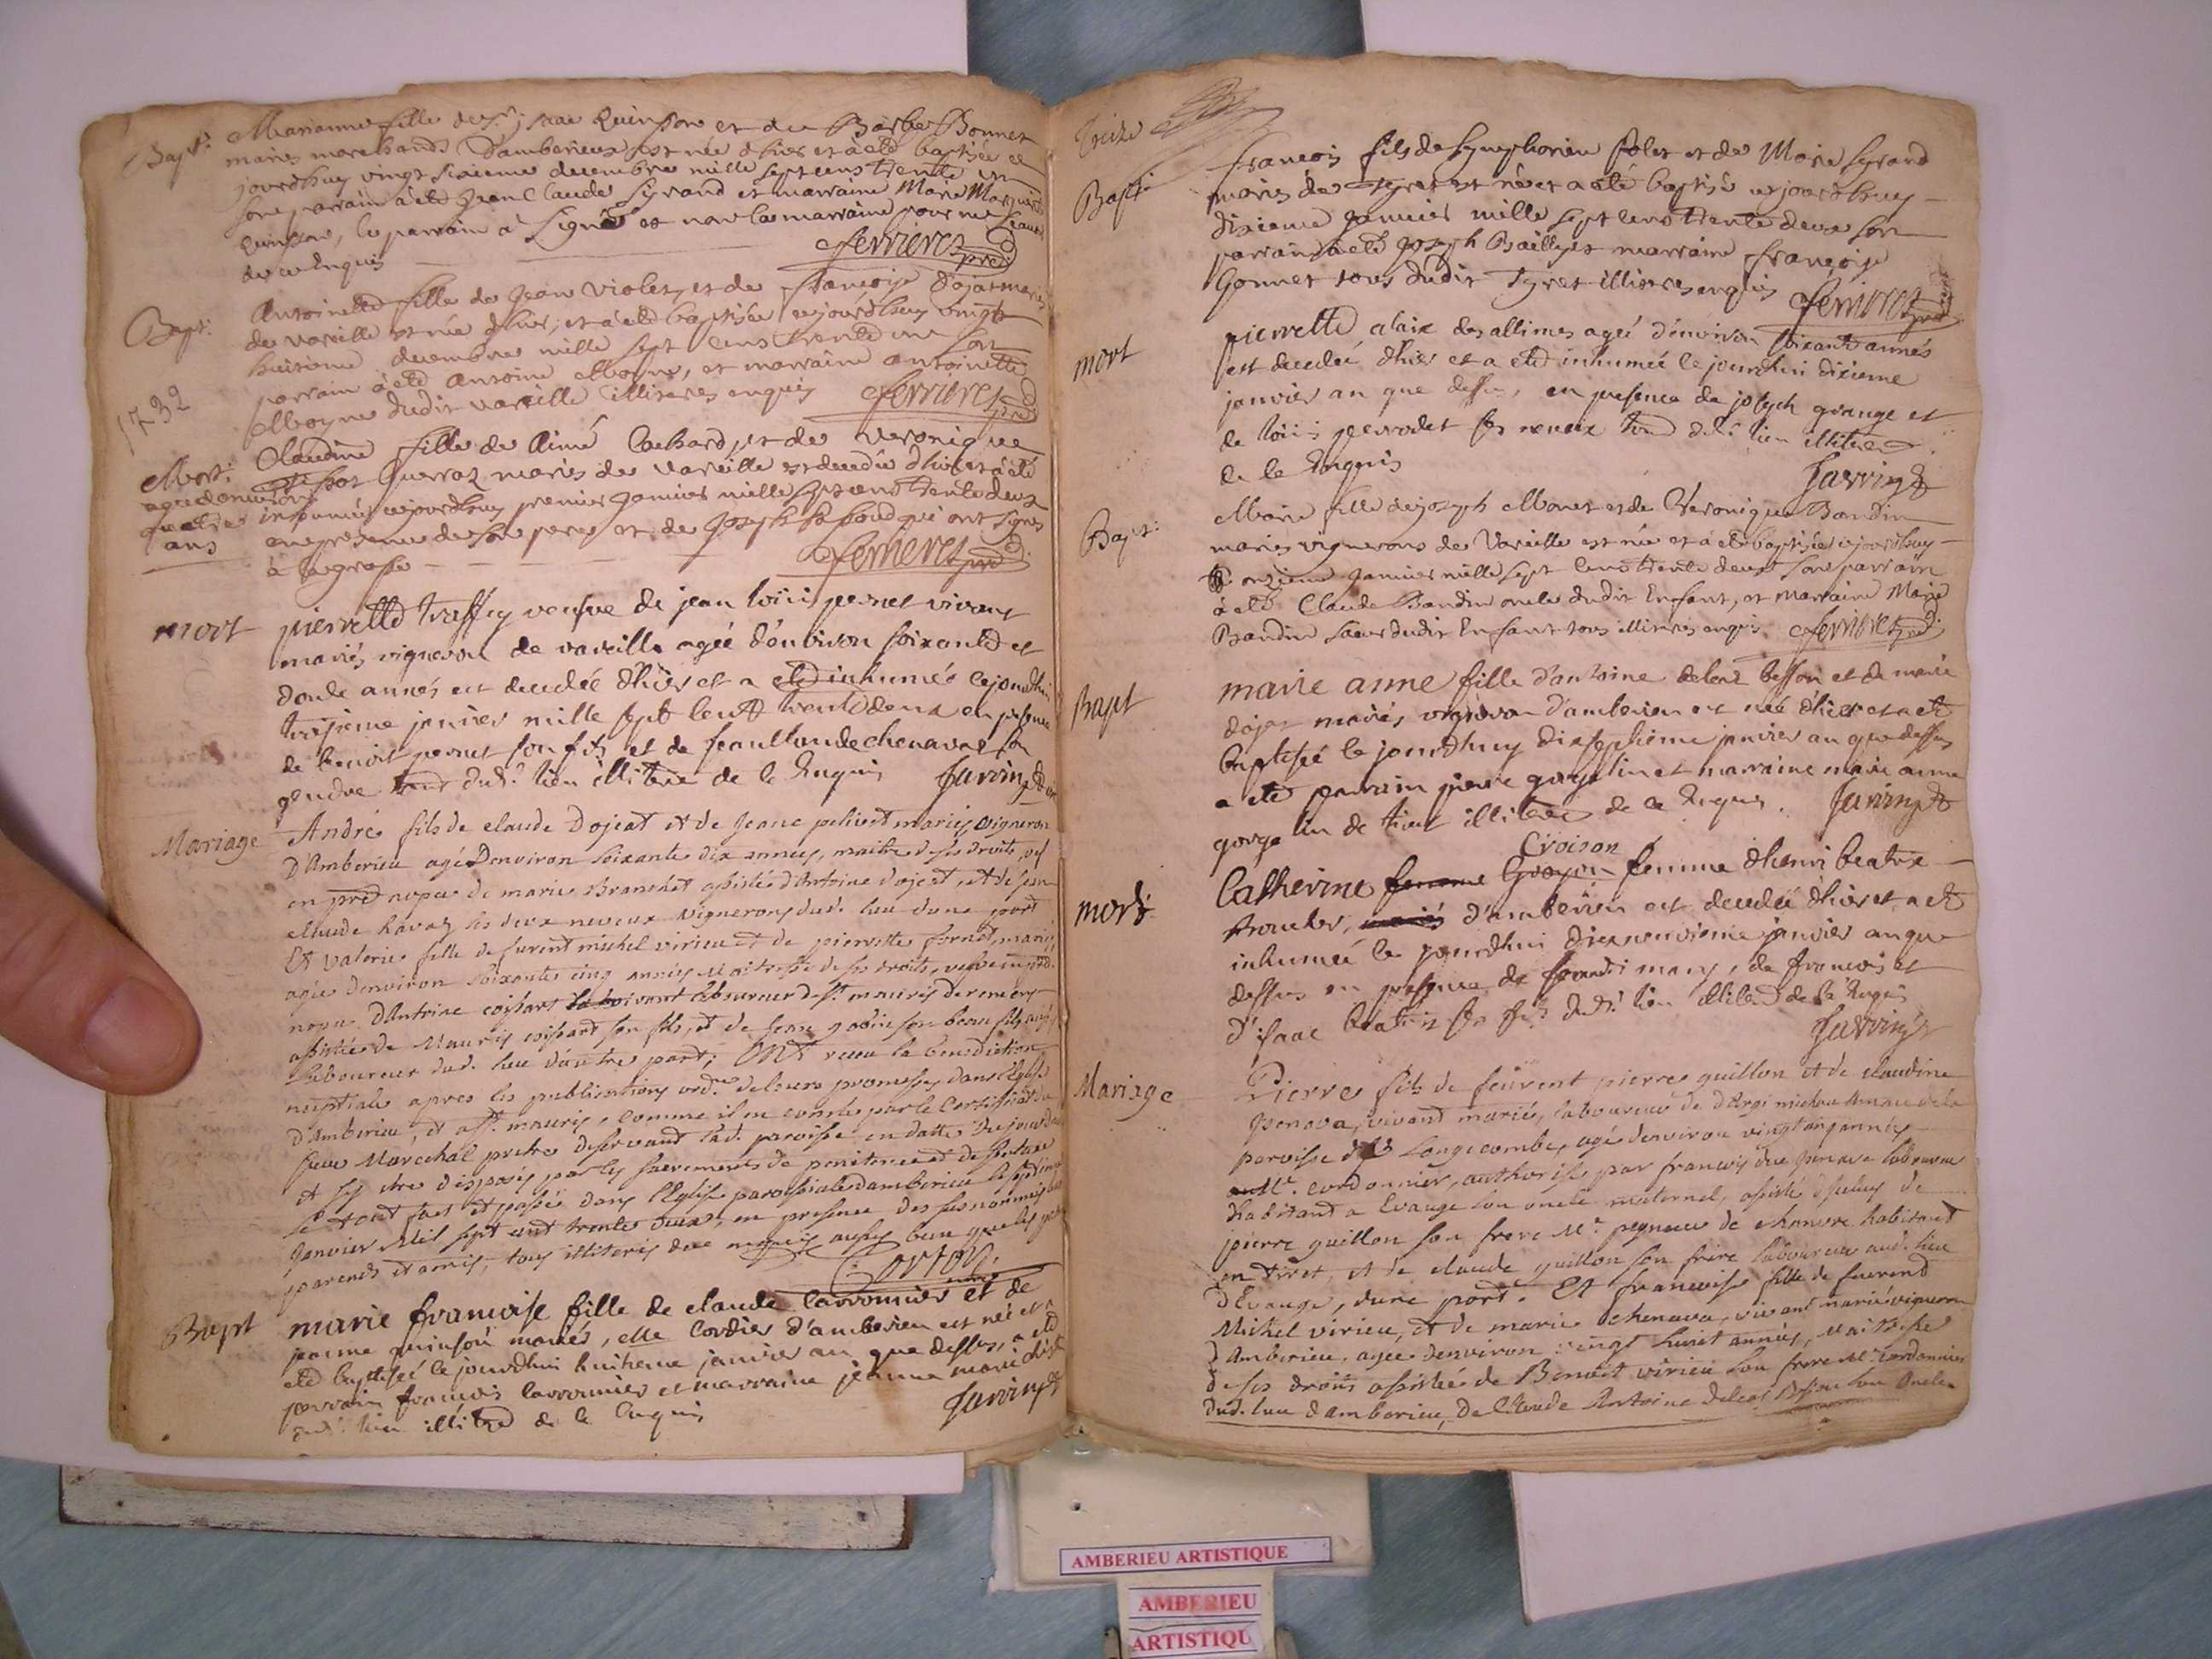 Bapt. Marianne fille de Sr isaac Quinson et de Barbe Bonnet
mariés marchands d'amberieux est née d'hier et a eté baptisée ce
jourd'huy vingt sixieme decembre mille sept cens trente un
son parrain a eté Jean Claude Sirand et marraine Marie
Quinson, le parrain a signé et non la marraine pour ne sçavoir
de ce enquis
ferrieres
Bapt. Antoinette fille de Jean Violet, et de françoise Dojat mariés
de Vareille est née d'hier, et a eté baptisée cejourd'huy vingt
huitieme decembre mille sept cens trente un son
parrain a eté Antoine Moyne, et marraine antoinette
Moyne dudit vareille illiteres enquis ferrieres
1732
Mort. Claudine fille de Aimé Cochard, et de Veronique
agée d'environ Querraz mariés de Vareille est decedée d'hier et a eté
quatre inhumée cejourd'huy premier janvier mille sept cens trente deux
ans en presence de son pere et de Joseph qui ont signés
a la grosse ferrieres
mort pierrette traffey veufve de jean loüis pernet vivant
mariés vigneron de vareille agée d'environ soixante et
douze années est decedée d'hier et a eté inhumée cejourdhui
troisieme janvier mille sept cents trente deux en presence
de benoit pernet son fils et de jean claude chenavaz son
gendre tous dudt. lieu illitere de ce enquis Jarrin
Mariage André fils de claude Dojeat et de Jeane mariés vigneron
D'Amberieu agé D'environ soixante dix années, maitre de ses droits, vef
en prem nopce de marie Branchet assisté d'Antoine dojeat, et de jean
claude ravaz ses deux neveux vignerons dud. lieu d'une part
Et valerie fille de furent michel virieu et de pierrette fornet, mariés,
agée d'environ soixante cinq années Maitresse de ses droits, vefve en prd.
nopce d'Antoine coissart vivant laboureur de St. mauris de remens
assistée de Mauris coissart son fils, et de jean gobin son beau fils aussi
Laboureur dud. lieu d'autre part; Ont receu la benediction
nuptiale apres les publications ordres de leurs promesses dans l'Eglise
D'Amberieu, et St. mauris, comme il en conste par le Certificat de
sieur Marechal pretre deservant lad. paroisse en datte du jour
et s'y etre disposés par les sacrements de penitence et de leucarie
le tout fait et passé dans l'Eglise paroissiale d'amberieu le sept
Janvier Mil sept cent trente deux, en presence des susnommés
parents et amis, tous illiteris de ce enquis aussy bien que les
Cortois, curé
Bapt marie francoise fille de claude carronnier et de
jeanne quinson mariés, elle cordier d'amberieu est née et a
eté baptisée le jourdhui huitieme janvier an que dessus, a eté
parrain francois carronnier et marraine jeanne marie
dudt. lieu illitere de ce enquis Jarrin
Treize
Bapt. francois fils de Symphorien folet et de Marie Sirand
mariés de Tyret est né et a eté baptisé cejourd'huy
dixieme janvier mille sept cens trente deux son
parrain a eté Joseph Bailly et marraine françoise
Gonnet tous dudit Tyret illiteres enquis ferrieres
mort pierrette alaix des allimes agée d'environ soixante années
est decedée d'hier et a eté inhumée le jourdhui dixieme
janvier an que dessus, en presence de joseph grange et
de loüis perrodet ses neveux tous dudt. lieu illiteres
de ce enquis Jarrin
Bapt. Marie fille de joseph Monet et de Veronique Bandin
mariés vignerons de Vareille est née et a eté baptisée cejourd'huy
onzieme janvier mille sept cens trente deux son parrain
a eté Claude Bandin oncle dudit Enfant, et marraine Marie
Bandin sœur dudit Enfant tous illiteres enquis. ferrieres
Bapt marie anne fille d'antoine delent besson et de marie
dojat mariés, vigneron d'amberieu est née d'hier et a eté
baptisée le jourdhuy dixseptieme janvier an que dessus
a eté parrain pierre gorgelin et marraine marie anne
gorgelin de tiret illiteres de ce enquis. Jarrin
Croison
mort Catherine femme Groson femme d'henri beatrix
troucher, mariés d'amberieu est decedée d'hier et a eté
inhumée le jourdhui dixneuvieme janvier an que
dessus en presence de sondt mary, de francois et
d'isaac beatrix ses fils dudt. lieu illiteres de ce enquis
Jarrin
Mariage Pierre fils de feurent pierre guillon et de claudine
Genava, vivant mariés, laboureur de d'Argi
paroisse de Longecombe, agé d'environ vingt années
Me. cordonnier, authorisé par francois du Genave laboureur
habitant a Evauge son oncle maternel, assisté d'iceluy de
pierre guillon son frere Me. pegneur de chanvre habitant
en tiret, et de claude guillon son frere laboureur aud. lieu
d'Evauge, d'une part. Et francoise fille de fuerend
Michel virieu, et de marie chenava, vivant mariés vigneron
d'Amberieu, agée denviron vingt huict années, Maitresse
de ses droits assistée de Benoit virieu son frere Me. cordonnier
dud. lieu d'amberieu, de Claude Antoine delent Besson son Oncle
AMBERIEU ARTISTIQUE
AMBERIEU
ARTISTIQU